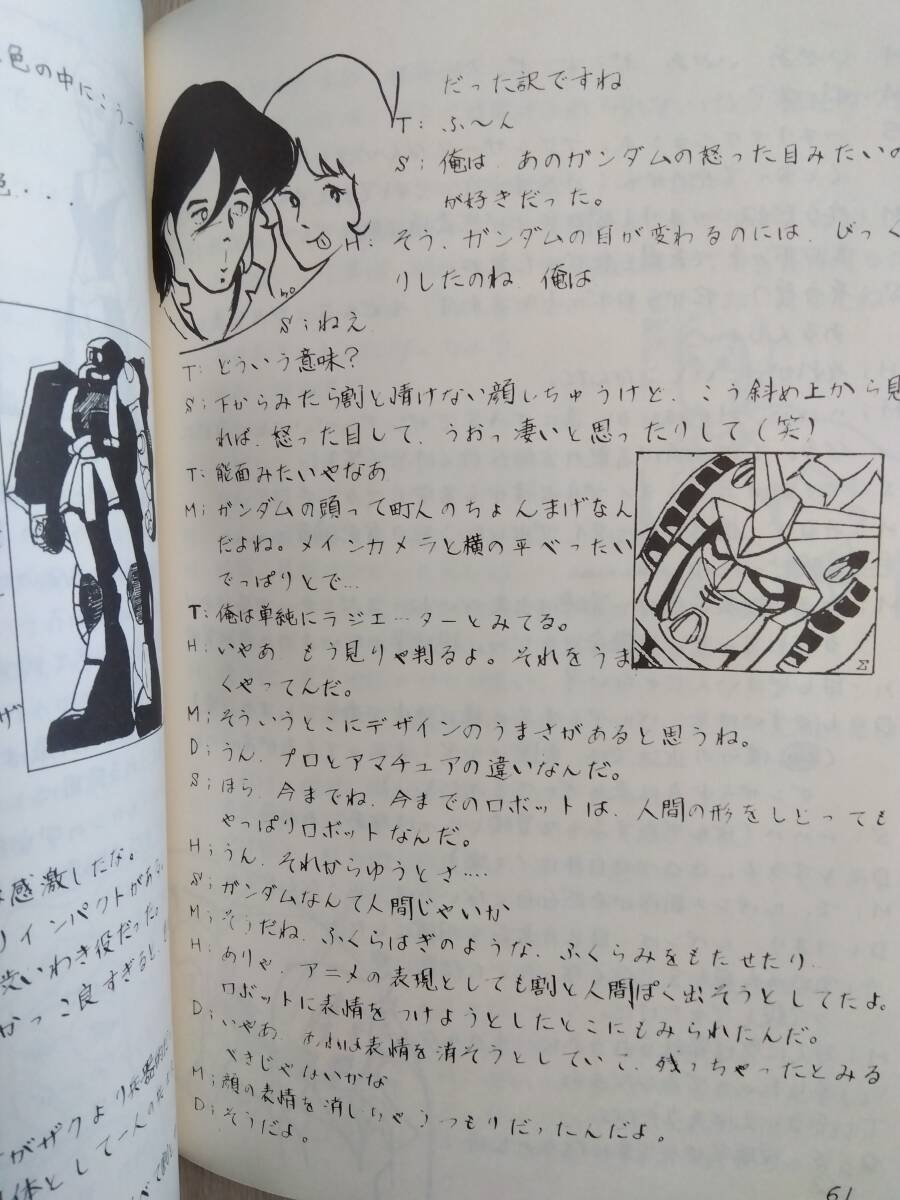 色の中にこう‥
色・・・
感激したな。
リインパクトがある。
渋いわき役だった。
かっこ良すぎると、
がザクより兵器的
体として一人の
だった訳ですね
T: ふ〜ん
S: 俺は、あのガンダムの怒った目みたいの
が好きだった。
H: そう、ガンダムの目が変わるのには、びっく
りしたのね、俺は
S; ねえ
T: どういう意味?
S; 下からみたら割と情けない顔しちゅうけど、こう斜め上から見
れば、怒った目して、うおっ凄いと思ったりして(笑)
T: 能面みたいやなあ
M; ガンダムの頭って町人のちょんまげなん
だよね。メインカメラと横の平べったい
でっぱりとで…
T: 俺は単純にラジエ…ターとみてる。
H: いやあ、もう見りゃ判るよ。それをうま
くやってんだ。
M; そういうとこにデザインのうまさがあると思うね。
D; うん、プロとアマチュアの違いなんだ。
S; ほら、今までね、今までのロボットは、人間の形をしとっても
やっぱりロボットなんだ。
H; うん、それからゆうとさ‥‥
S; ガンダムなんて人間じゃいか
M; そうだね、ふくらはぎのような、ふくらみをもたせたり、
H: ありゃ、アニメの表現としても割と人間ぽく出そうとしてたよ。
ロボットに表情をつけようとしたとこにもみられたんだ。
D; いやあ、あれは表情を消そうとしていて、残っちゃったとみる
べきじゃないかな
M; 顔の表情を消しちゃうつもりだったんだよ。
D; そうだよ。
Σ
61